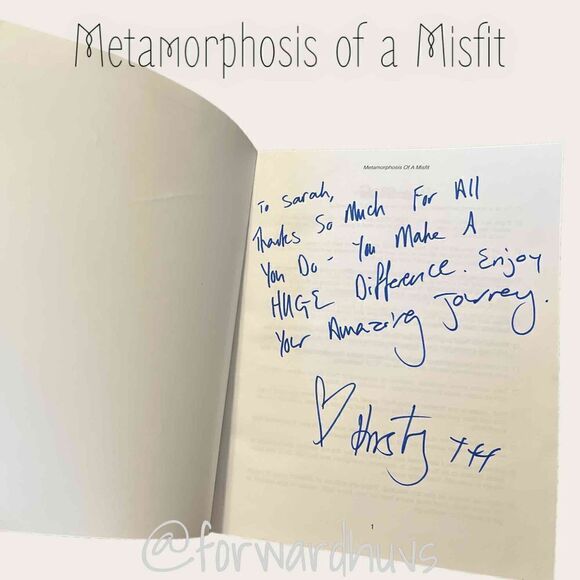 Metamorphosis of a Misfit
Metamorphosis Of A Misfit
To Sarah,
Thanks So Much For All
You Do - You Make A
HUGE Difference. Enjoy
Your Amazing Journey.
1
@forwardhuvs